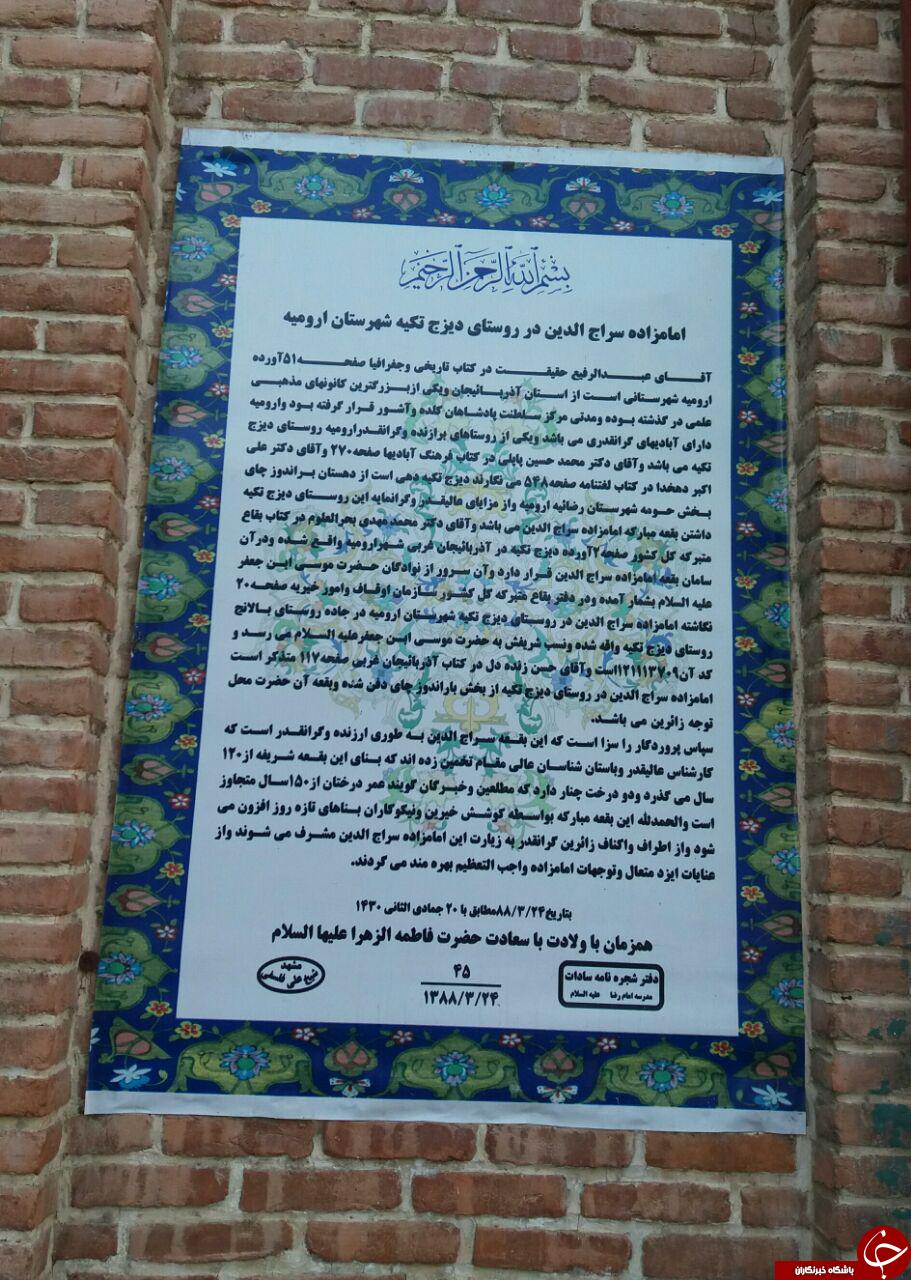 بسم الله الرحمن الرحیم
امامزاده سراج الدین در روستای دیزج تکیه شهرستان ارومیه
آقـــای عبـــدالرفیع حقیقـــت در کتاب تاریخی وجغرافیا صفحـــه۵۱آورده
ارومیه شهرستانی است از اسـتان آذربـائیجان ویکی ازبـزرگترین کانونهای مذهبـی
علمی در گذشته بوده ومدتی مرکز سلطنت پادشاهان کلده وآشور قرار گرفته بود وارومیه
دارای آبادیهای گرانقدری می باشد ویکی از روستاهای برازنده وگرانقدرارومیه روستای دیزج
تکیه می باشد وآقای دکتر محمد حسین پاپلی در کتاب فرهنگ آبادیها صفحه۲۷۰ وآقای دکتر علی
اکبر دهخدا در کتاب لغتنامه صفحه۵۴۸ می نگارند دیزج تکیه دهی است از دهستان براندوز چای
بـخش حـومه شهرسـتان رضائیه ارومیه واز مزایای عالیقـدر وگرانمایه این روسـتای دیزج تکیه
داشتن بقعه مبارکه امامزاده سراج الدین می باشد وآقای دکتر محمد مهدی بحرالعلوم در کتاب بقاع
متبرکه کل کشور صفحه۲۲آورده دیزج تکیه در آذربائیجان غربی شهرارومیه واقـع شده ودرآن
سامان بقعه امامزاده سراج الدین قرار دارد وآن سـرور از نوادگان حضرت موسـی ابـن جعفر
علیه السلام بشمار آمده ودر دفتر بقاع متبرکه کل کشور سازمان اوقـاف وامور خیریه صفحـه۲۰
نگاشته امامزاده سراج الدین در روستای دیزج تکیه شهرستان ارومیه در جاده روستای بـالانج
روستای دیزج تکیه واقه شده ونسب شریفش به حضرت موسـی ابـن جعفرعلیه السـلام می رسـد و
کد آن۱۱۲۱۱۱۳۷۰۹است وآقای حسن زنده دل در کتاب آذربائیجان غربی صفحه۱۱۷ متذکر اسـت
امامزاده سراج الدین در روستای دیزج تکیه از بخش باراندوز چای دفن شده وبقعه آن حضرت محل
توجه زائرین می باشد.
سپاس پروردگار را سزا است که این بقـعه سـراج الدین بـه طوری ارزنده وگرانقـدر است که
کارشناس عالیقدر وباستان شناسان عالی مقـام تخمین زده اند که بـنای این بقـعه شریفه از۱۲۰
سال می گذرد ودو درخت چنار دارد که مطلعین وخبـرگان گویند عمر درختان از۱۵۰سال متجاوز
است والحمدلله این بقعه مبارکه بواسـطه کوشـش خیرین ونیکوکاران بـناهای تازه روز افزون می
شود واز اطراف واکناف زائرین گرانقدر به زیارت این امامزاده سراج الدین مشرف می شوند واز
عنایات ایزد متعال وتوجهات امامزاده واجب التعظیم بهره مند می گردند.
بتاریخ۸۸/۳/۲۴مطابق با ۲۰ جمادی الثانی ۱۴۳۰
همزمان با ولادت با سعادت حضرت فاطمه الزهرا علیها السلام
دفتر شجره نامه سادات
مدرسه امام رضا علیه السلام
۴۵
۱۳۸۸/۳/۲۴
مشهد
علی فلسفی
باشگاه خبرنگاران